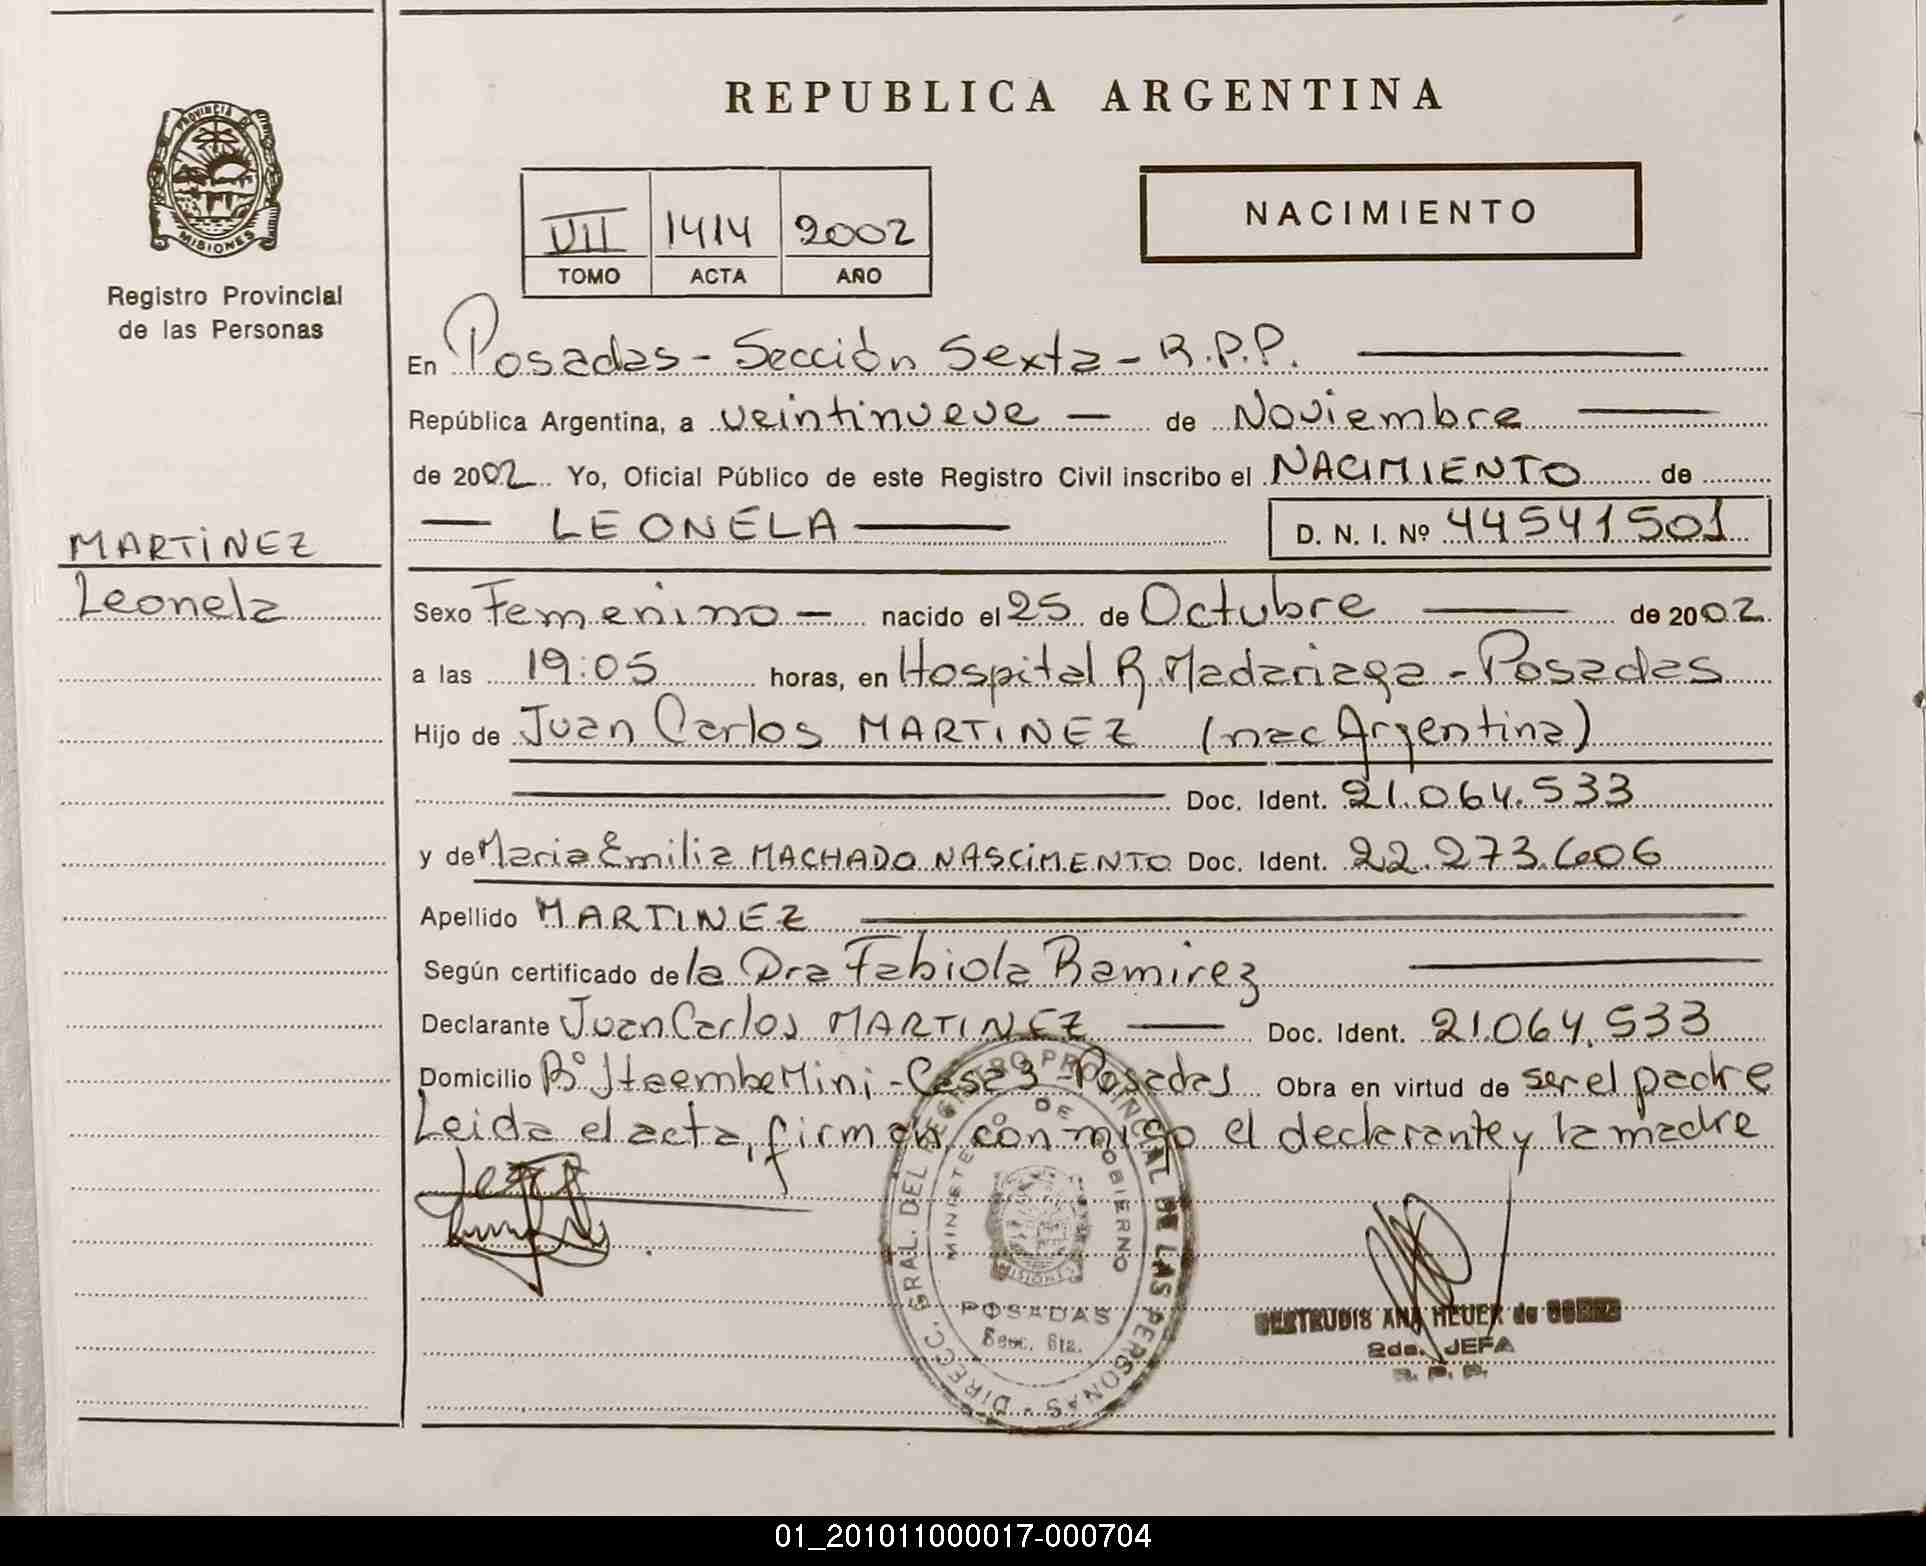 REPUBLICA ARGENTINA
PROVINCIA DE
MISIONES
Registro Provincial
de las Personas
VII 1414 2002
TOMO ACTA AÑO
NACIMIENTO
En Posadas - Sección Sexta - R.P.P.
República Argentina, a veintinueve — de Noviembre
de 2002 Yo, Oficial Público de este Registro Civil inscribo el NACIMIENTO de
— LEONELA — D. N. I. Nº 44541501
MARTINEZ
Leonela
Sexo Femenino — nacido el 25 de Octubre — de 2002.
a las 19:05 horas, en Hospital R. Madariaga - Posadas
Hijo de Juan Carlos MARTINEZ (nac Argentina)
Doc. Ident. 21.064.533
y de Maria Emilia MACHADO NASCIMENTO Doc. Ident. 22.273.606
Apellido MARTINEZ
Según certificado de la Dra Fabiola Ramirez
Declarante Juan Carlos MARTINEZ — Doc. Ident. 21.064.533
Domicilio Bº Itaembe Mini - Casa 3 - Posadas Obra en virtud de ser el padre
Leida el acta, firman con migo el declarante y la madre
DIRECC. GRAL. DEL REGISTRO PROVINCIAL DE LAS PERSONAS
MINISTERIO DE GOBIERNO
MISIONES
POSADAS
Secc. 6ta.
GERTRUDIS ANA HEUER de
2da. JEFA
R. P. P.
01_201011000017-000704